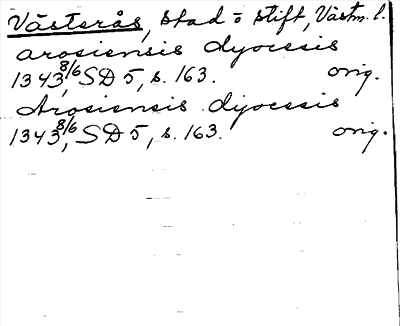 Västerås, stad o stift, Västm. l.
arosiensis dyocesis
1343 8/6, SD 5, s. 163. orig.
Arosiensis dyocesis
1343 8/6, SD 5, s. 163. orig.